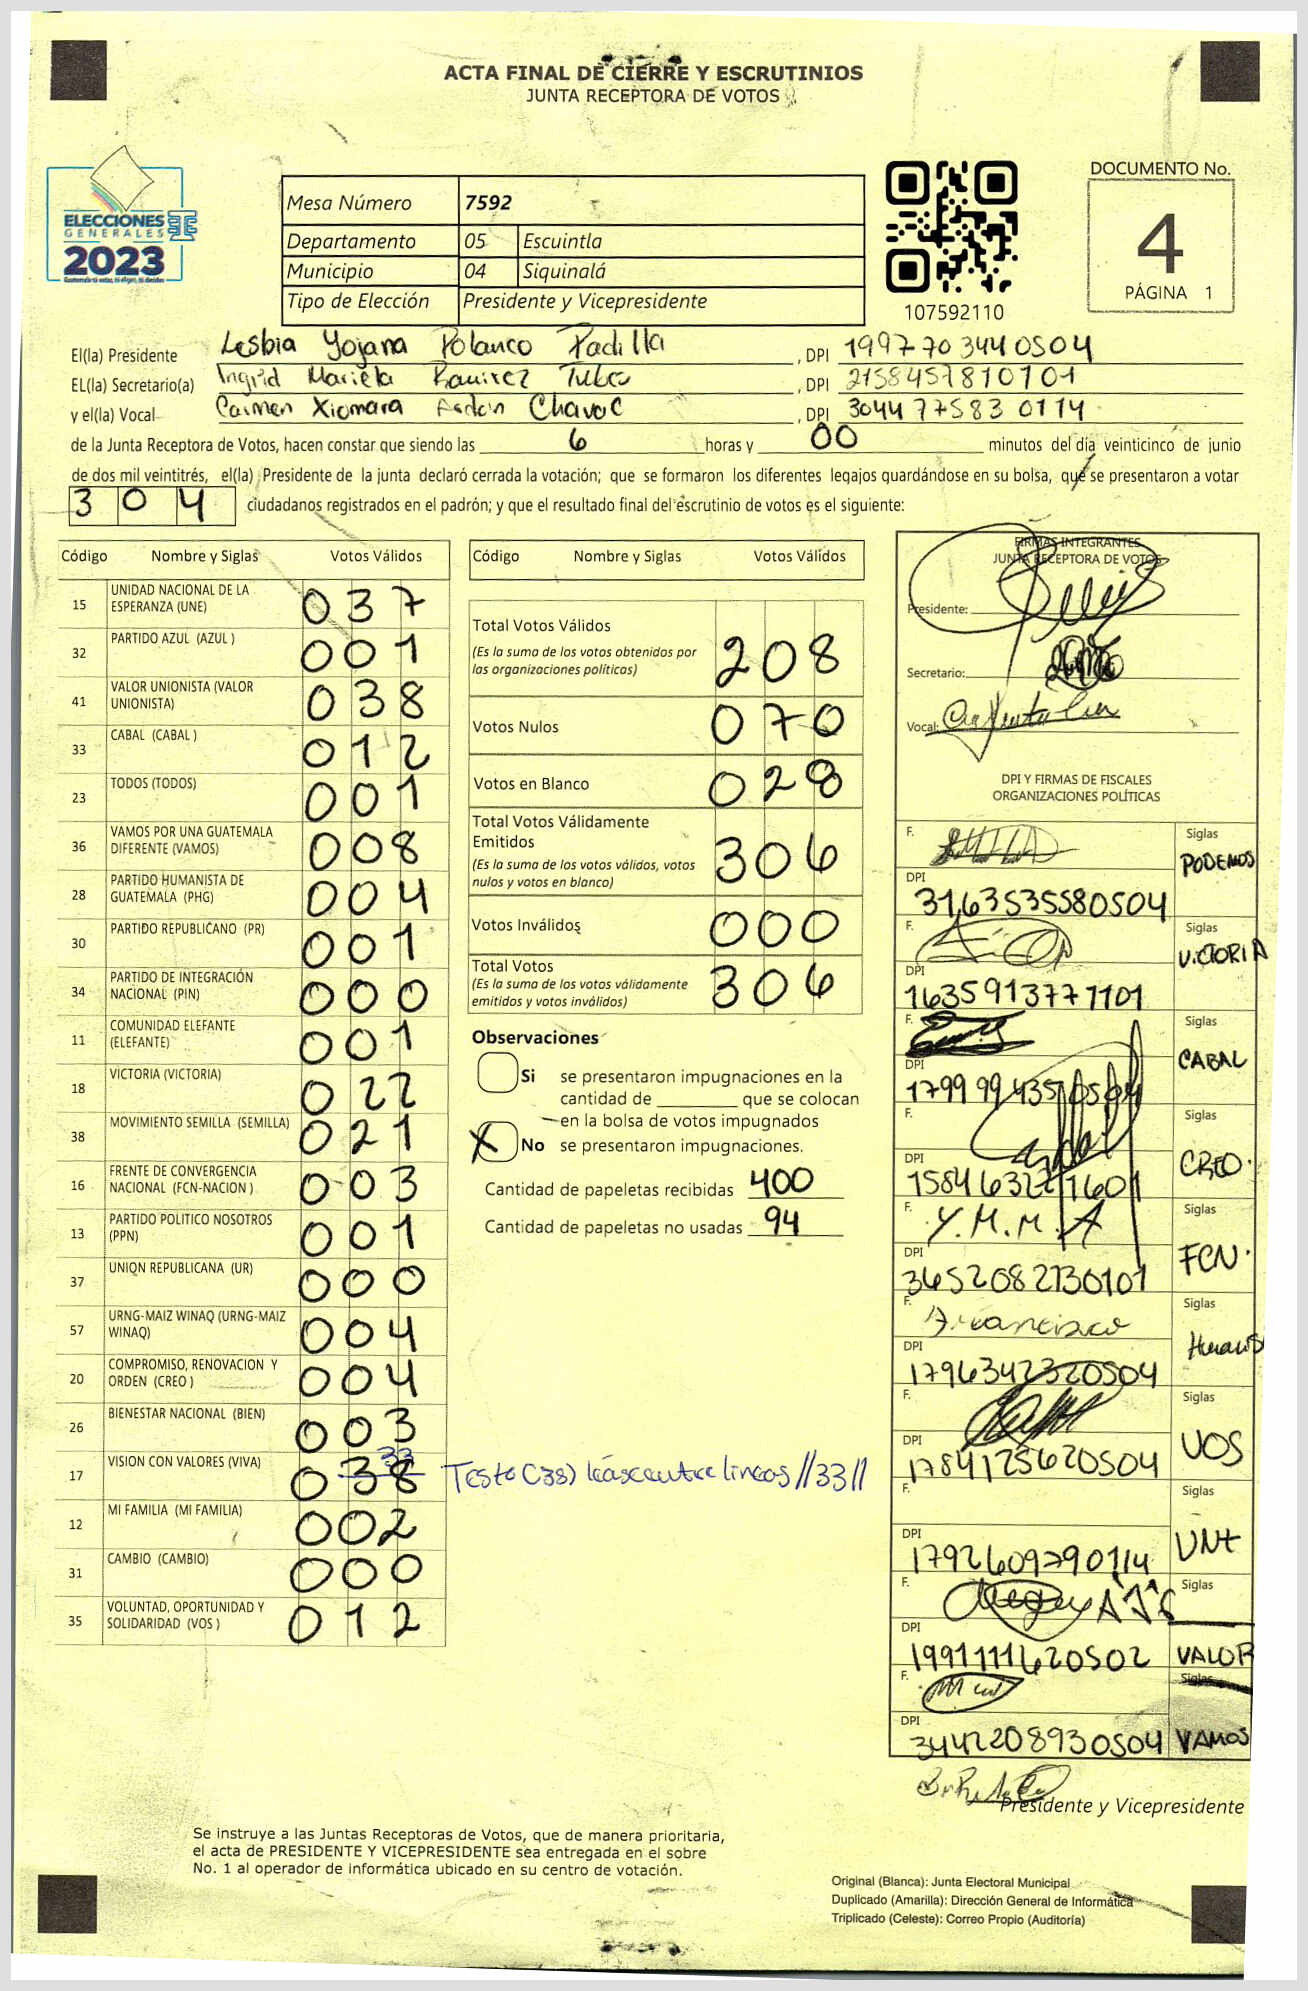 ACTA FINAL DE CIERRE Y ESCRUTINIOS
JUNTA RECEPTORA DE VOTOS
ELECCIONES
GENERALES
2023
Mesa Número 7592
Departamento 05 Escuintla
Municipio 04 Siquinalá
Tipo de Elección Presidente y Vicepresidente
107592110
DOCUMENTO No.
4
PÁGINA 1
El(la) Presidente Lesbia Yojana Polanco Padilla, DPI 1997703440504
EL(la) Secretario(a) Ingrid Mariela Ramirez, DPI 2158457810101
y el(la) Vocal Carmen Xiomara Chavac, DPI 3044775830114
de la Junta Receptora de Votos, hacen constar que siendo las 6 horas y 00 minutos del día veinticinco de junio
de dos mil veintitrés, el(la) Presidente de la junta declaró cerrada la votación; que se formaron los diferentes legajos guardándose en su bolsa, que se presentaron a votar
304 ciudadanos registrados en el padrón; y que el resultado final del escrutinio de votos es el siguiente:
Código Nombre y Siglas Votos Válidos
15 UNIDAD NACIONAL DE LA ESPERANZA (UNE) 037
32 PARTIDO AZUL (AZUL ) 001
41 VALOR UNIONISTA (VALOR UNIONISTA) 038
33 CABAL (CABAL ) 012
23 TODOS (TODOS) 001
36 VAMOS POR UNA GUATEMALA DIFERENTE (VAMOS) 008
28 PARTIDO HUMANISTA DE GUATEMALA (PHG) 004
30 PARTIDO REPUBLICANO (PR) 001
34 PARTIDO DE INTEGRACIÓN NACIONAL (PIN) 000
11 COMUNIDAD ELEFANTE (ELEFANTE) 001
18 VICTORIA (VICTORIA) 022
38 MOVIMIENTO SEMILLA (SEMILLA) 021
16 FRENTE DE CONVERGENCIA NACIONAL (FCN-NACION ) 003
13 PARTIDO POLITICO NOSOTROS (PPN) 001
37 UNION REPUBLICANA (UR) 000
57 URNG-MAIZ WINAQ (URNG-MAIZ WINAQ) 004
20 COMPROMISO, RENOVACION Y ORDEN (CREO ) 004
26 BIENESTAR NACIONAL (BIEN) 003
17 VISION CON VALORES (VIVA) 038 33
Testo (38) léase entre lineas //33//
12 MI FAMILIA (MI FAMILIA) 002
31 CAMBIO (CAMBIO) 000
35 VOLUNTAD, OPORTUNIDAD Y SOLIDARIDAD (VOS ) 012
Código Nombre y Siglas Votos Válidos
Total Votos Válidos 208
(Es la suma de los votos obtenidos por
las organizaciones políticas)
Votos Nulos 070
Votos en Blanco 028
Total Votos Válidamente
Emitidos 306
(Es la suma de los votos válidos, votos
nulos y votos en blanco)
Votos Inválidos 000
Total Votos 306
(Es la suma de los votos válidamente
emitidos y votos inválidos)
Observaciones
Si se presentaron impugnaciones en la
cantidad de que se colocan
en la bolsa de votos impugnados
X No se presentaron impugnaciones.
Cantidad de papeletas recibidas 400
Cantidad de papeletas no usadas 94
FIRMAS INTEGRANTES
JUNTA RECEPTORA DE VOTOS
Presidente:
Secretario:
Vocal:
DPI Y FIRMAS DE FISCALES
ORGANIZACIONES POLÍTICAS
F. Siglas PODEMOS
DPI 3163535580504
F. Siglas VICTORIA
DPI 1635913771101
F. Siglas CABAL
DPI
F. Siglas CREO.
DPI
F. Y.M.M.A Siglas FCN.
DPI 3652082130101
F. Francisco Siglas
DPI 1796342320504
F. Siglas VOS
DPI 1784125620504
F. Siglas
DPI 1792609790114
F. Siglas VALOR
DPI 1991111620502
F. Siglas VAMOS
DPI 3442208930504
Presidente y Vicepresidente
Se instruye a las Juntas Receptoras de Votos, que de manera prioritaria,
el acta de PRESIDENTE Y VICEPRESIDENTE sea entregada en el sobre
No. 1 al operador de informática ubicado en su centro de votación.
Original (Blanca): Junta Electoral Municipal
Duplicado (Amarilla): Dirección General de Informática
Triplicado (Celeste): Correo Propio (Auditoría)